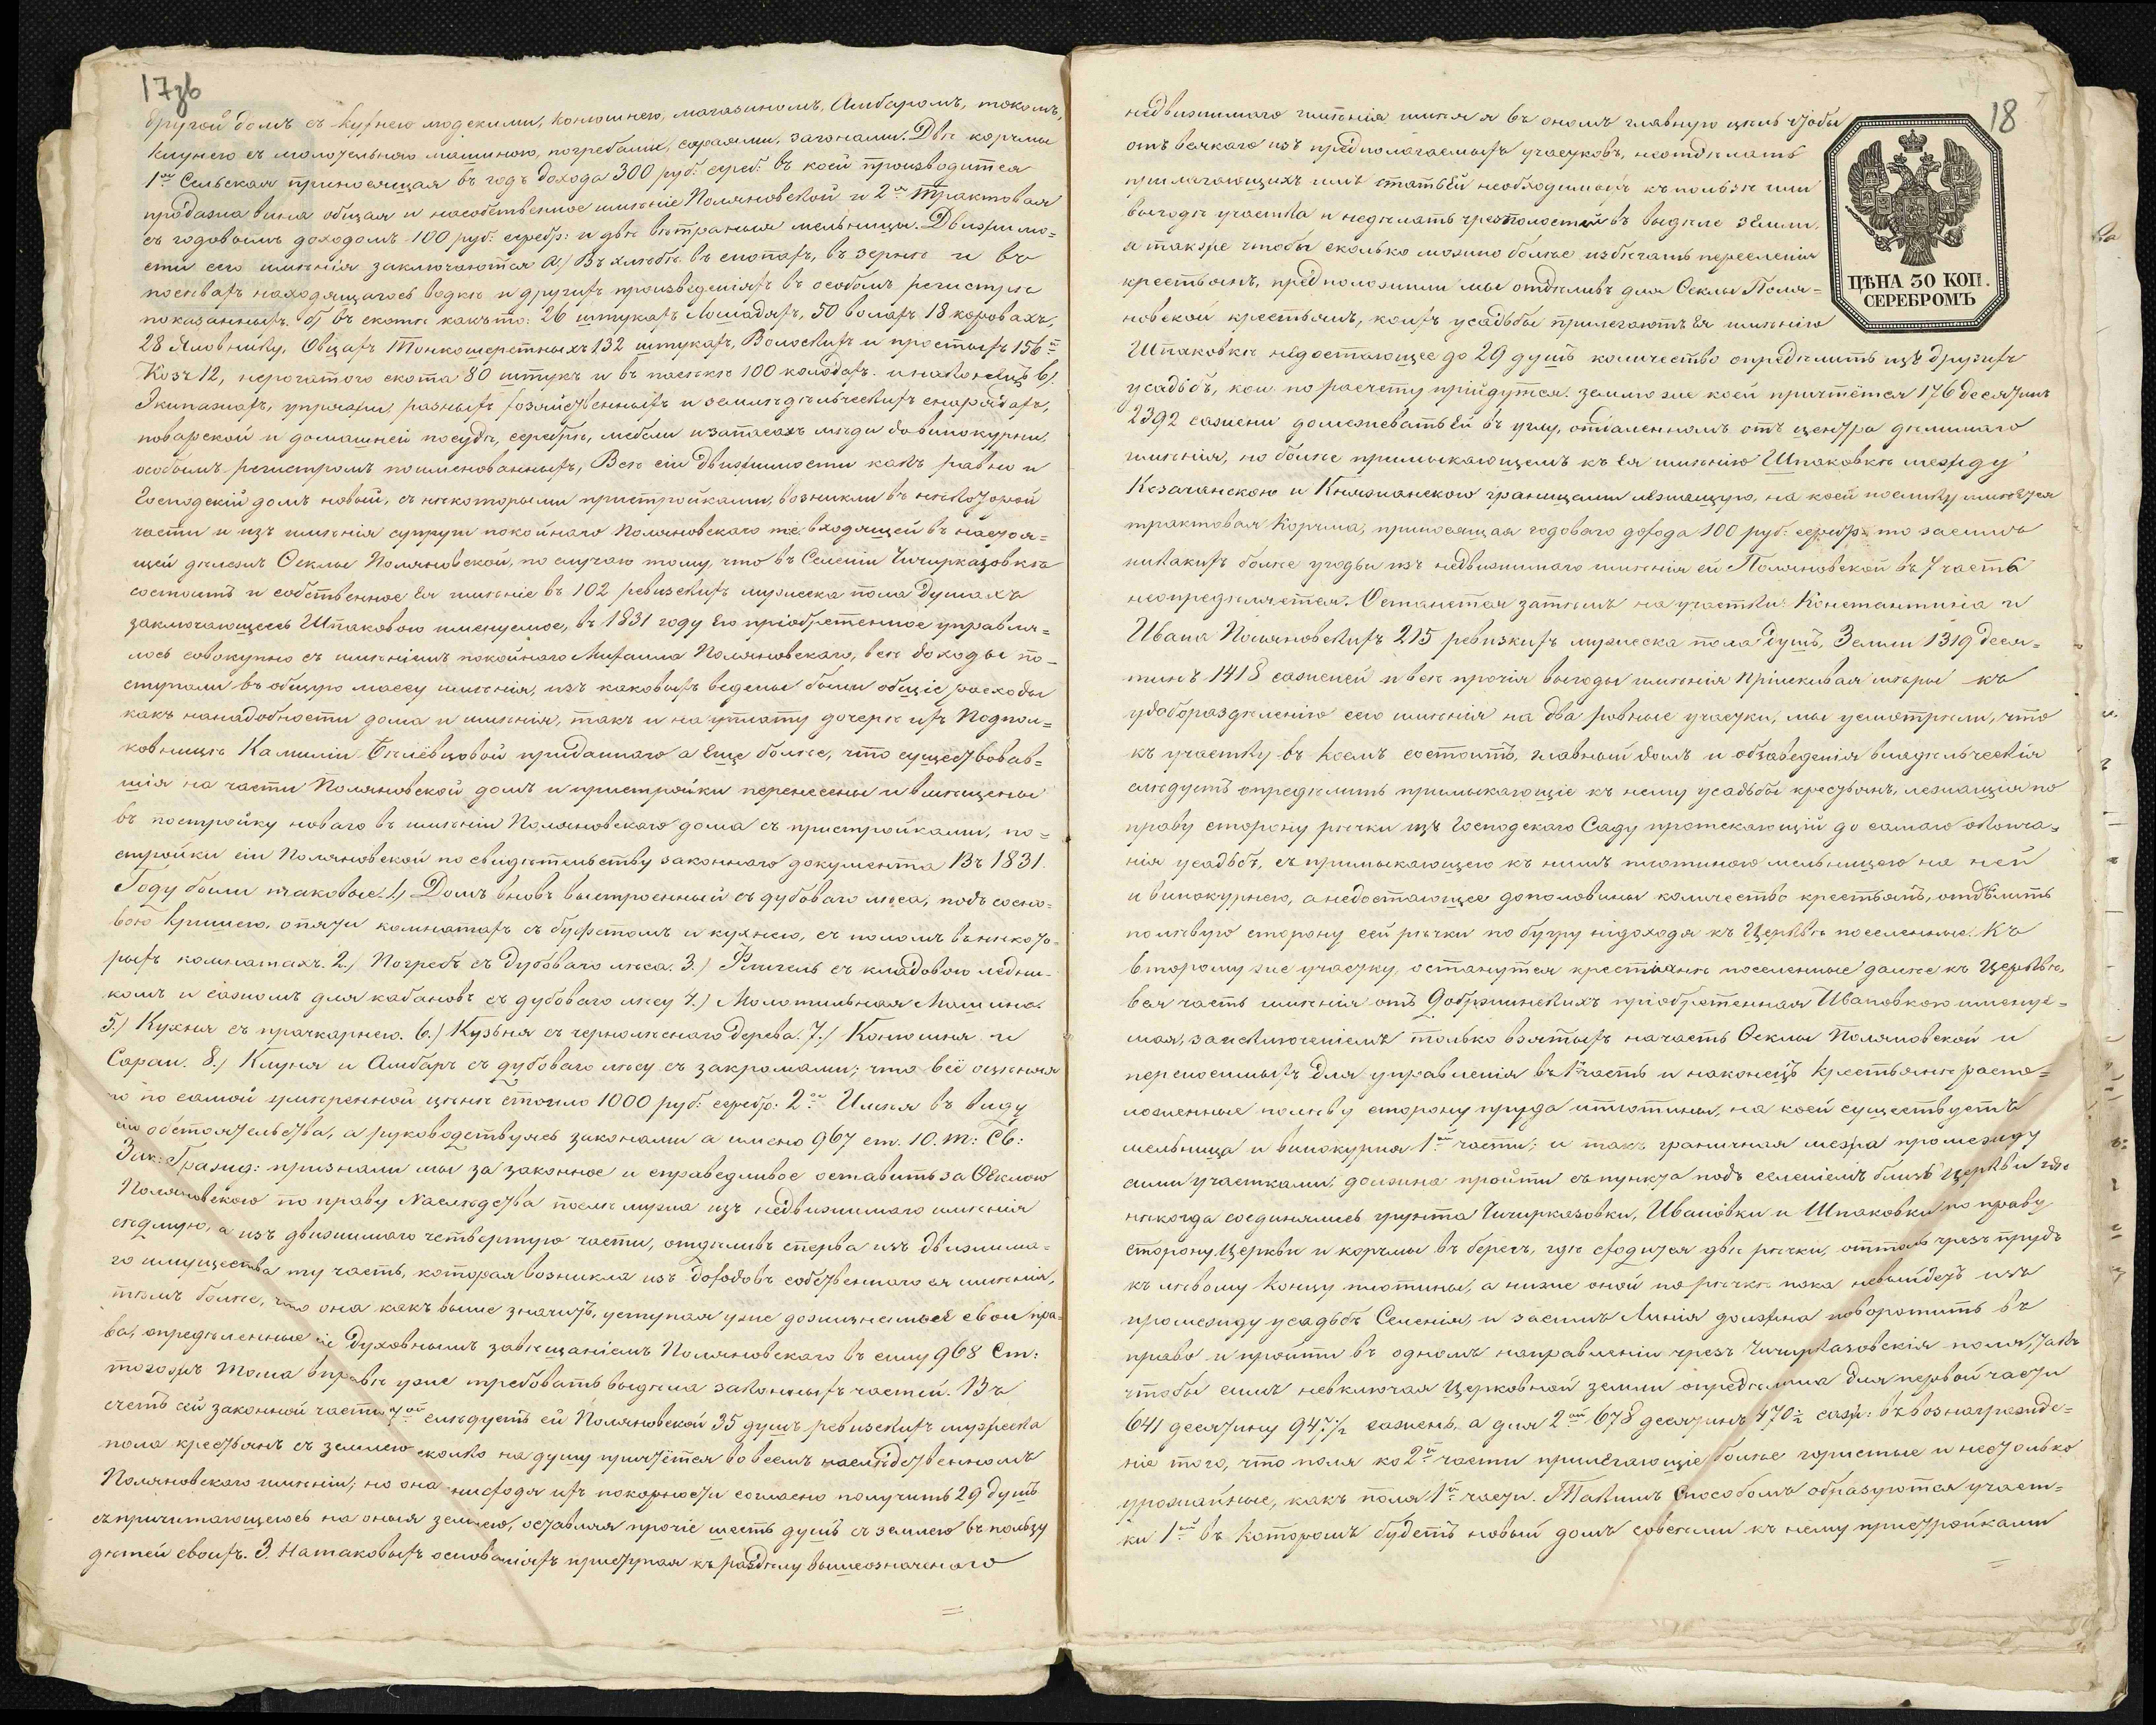 17зв
другой домъ съ кухнею людскими, конюшнею, магазиномъ, Амбаромъ, токомъ,
клунею съ молотельною машиною, погребами, сараями, загонами. Двѣ корчмы
1ая Сельская приносящая въ годъ дохода 300 руб: сереб: въ коей производится
продажа вина общая и насобственное имѣніе Поляновской и 2ая Трактовая
съ годовымъ доходомъ 100 руб: серебр: и двѣ вѣтраныя мельницы. Движимо=
сти сего имѣнія заключаются а) Въ хлѣбѣ въ скопахъ, въ зернѣ и въ
посѣвахъ находящагось водкѣ и другихъ произведеніяхъ въ особомъ регистрѣ
показанныхъ. б) въ скотѣ какъ то: 26 штукахъ Лошадяхъ, 50 волахъ 18 коровахъ,
28 Яловнику, Овцахъ Тонкошерстныхъ 132 штукахъ, Волоскихъ и простыхъ 156
Козъ 12, нерогатого скота 80 штукъ и въ пасѣкѣ 100 колодахъ. инаконецъ в).
Экипажахъ, упряжи, разныхъ хозяйственныхъ и земледѣльческихъ снарядахъ,
поварской и домашней посудѣ, серебрѣ, мебели изапасахъ мѣди довинокурни,
особымъ регистромъ поименованныхъ, Всѣ сіи движимости какъ равно и
Господскій домъ новый, съ нѣкоторыми пристройками, возникли въ нѣкоторой
части и изъ имѣнія супруги покойнаго Поляновскаго тѣ входящей въ настоя=
щей дѣлежъ Феклы Поляновской, по случаю тому, что въ Селеніи Чичирказовкѣ
состоитъ и собственное Ея имѣніе въ 102 ревизскихъ мужеска пола душахъ
заключающееся Шпаковою именуемое, въ 1831 году Ею пріобретенное управля=
лось совокупно съ имѣніемъ покойнаго Михаила Поляновскаго, всѣ доходы по=
ступали въ общую массу имѣнія, изъ каковыхъ ведены были общіе расходы
какъ нанадобности дома и имѣнія, такъ и на уплату дочерѣ ихъ Подпол=
ковницѣ Камиліи Бѣлёвцовой приданнаго а еще болѣе, что существовав=
шія на части Поляновской домъ и пристройки перенесены и вмѣщены
въ постройку новаго въ имѣніи Поляновскаго дома съ пристройками, по=
стройки сіи Поляновской по свидѣтельству законнаго документа Въ 1831.
Году были таковые: 1) Домъ вновь выстроенный съ дубоваго лѣса, подъ сосно=
вою крышею, опяти комнатахъ съ буфетомъ и кухнею, съ поломъ вънѣкото=
рыхъ комнатахъ. 2.) Погребъ съ дубоваго лѣса. 3.) Флигель съ кладовою ледни=
комъ и сажомъ для кабановъ съ дубоваго лѣсу 4.) Молотильная Машина.
5.) Кухня съ прачкарнею. 6.) Кузьня съ чернолѣснаго дерева. 7.) Конюшня и
Сараи. 8.) Клуня и Амбаръ съ дубоваго лѣсу съ закромами; что всё оцѣняя
по самой умѣренной цѣнѣ стоило 1000 руб: серебр: 2ое Имѣя въ виду
сіи обстоятельства, а руководствуясь законами а имено 967 ст. 10. т: Св:
Зак: Гражд: признали мы за законное и справедливое оставить за Феклою
Поляновскою по праву Наслѣдства послѣ мужа изъ недвижимаго имѣнія
седмую, а изъ движимаго четвертую части, отдѣливъ сперва изъ движима=
го имущества ту часть, которая возникла изъ доходовъ собственнаго ея имѣнія,
тѣмъ болѣе, что она какъ выше значитъ, уступая уже дожизненные свои пра=
ва, опредѣленные ей Духовнымъ завѣщаніемъ Поляновскаго въ силу 968 Ст:
тогожъ Тома вправѣ уже требовать выдѣла законныхъ частей. Въ
счетъ сей законной части 7ой слѣдуетъ ей Поляновской 35 душъ ревизскихъ мужеска
пола крестьянъ съ землею сколко на душу причтётся вовсемъ наслѣдственномъ
Поляновскаго имѣніи; но она нисходя ихъ покорности согласно получить 29 душъ
съпричитающеюсь на оныя землею, оставляя прочіе шесть душъ съ землею въ пользу
дѣтей своихъ. 3. Натаковыхъ основаніяхъ приступая къ раздѣлу вышеозначенаго
18
ЦѢНА 30 КОП.
СЕРЕБРОМЪ
недвижимаго имѣнія имѣя я въ ономъ главную цѣль чтобы
отъ всякаго изъ предполагаемыхъ участковъ, неотдѣлать
прилагающихъ имъ статьей необходимыхъ къ ползѣ или
выгодѣ участка и недѣлать чрезполостей въ выдѣле земли,
а также чтобы сколько можно болѣе избѣгать переселенія
крестьянъ, предположили мы отдѣливъ для Феклы Поля=
новской крестьянъ, коихъ усадьбы прилегаютъ Ея имѣнію
Шпаковкѣ недостающее до 29 душъ количество опредѣлить изъ другихъ
усадьбъ, кои по расчету прійдутся. землю же коей причтётся 176 десятинъ
2392 сажени домежевать Ей въ углу, отдаленномъ отъ центра дѣлимаго
имѣнія, но болѣе примыкающемъ къ Ея имѣнію Шпаковкѣ между
Козачанскою и Княжанскою границами лежащую, на коей поелику имѣется
трактовая Корчма, приносящая годоваго дохода 100 руб: серебр: то засимъ
никакихъ болѣе угодьи изъ недвижимаго имѣнія ей Поляновской въ 7 часть
неопредѣляется. Останется затѣмъ на участки: Константина и
Ивана Поляновскихъ 215 ревизкихъ мужеска пола душъ, Земли 1319 деся=
тинъ 1418 саженей и всѣ прочія выгоды имѣнія Пріискивая мѣры къ
удобораздѣленію сего имѣнія на два ровные участки, мы усмотрѣли, что
къ участку въ коемъ состоитъ, главный домъ и обзаведенія владѣльческія
слѣдуетъ опредѣлить примыкающіе къ нему усадьбы крестьянъ, лежащія по
праву сторону рѣчки изъ Господскаго Саду протекающій до самаго оконча=
нія усадьбъ, съ примыкающею къ нимъ плотиною мельницею на ней
и винокурнею, анедостающее дополовины количество крестьянъ, отдѣлить
полѣвую сторону сей рѣчки по бугру недоходя къ Церквѣ поселенные. Къ
второму же участку, останутся крестьянѣ поселенные далѣе къ Церквѣ,
вся часть имѣнія отъ Добржинскихъ пріобрѣтенная Ивановкою именуе=
мая, заисключеніемъ только взятыхъ начасть Феклы Поляновской и
переносимыхъ для управленія въ 1 часть и наконецъ крестьянѣ распо=
ложенные полѣву сторону пруда иплотины, на коей существуетъ
мельница и винокурня 1ой части; и такъ граничная межа промежду
сими участками, должна пройти съпункта подъ селеніемъ близь Церкви гдѣ
некогда соединялись грунта Чичирказовки, Ивановки и Шпаковки по праву
сторону Церкви и корчмы въ берегъ, гдѣ сходится двѣ рѣчки, оттоль чрезъ прудъ
къ лѣвому концу плотины, а ниже оной по рѣчкѣ пока невыйдетъ изъ
промежду усадьбъ Селенія, и засимъ Линія должна поворотить въ
право и пройти въ одномъ направленіи чрезъ Чичирказовскія поля, такъ
чтобы симъ невключая Церковной земли опредѣлила для первой части
641 десятину 947½ сажень, а для 2ой 678 десятинъ 470½ саж: въвознагражде=
ніе того, что поля ко 2й части прилегающіе болѣе гористые и нестолько
урожайные, какъ поля 1й части. Такимъ способомъ образуются участ=
ки 1ый въ которомъ будетъ новый домъ совсѣми къ нему пристройками